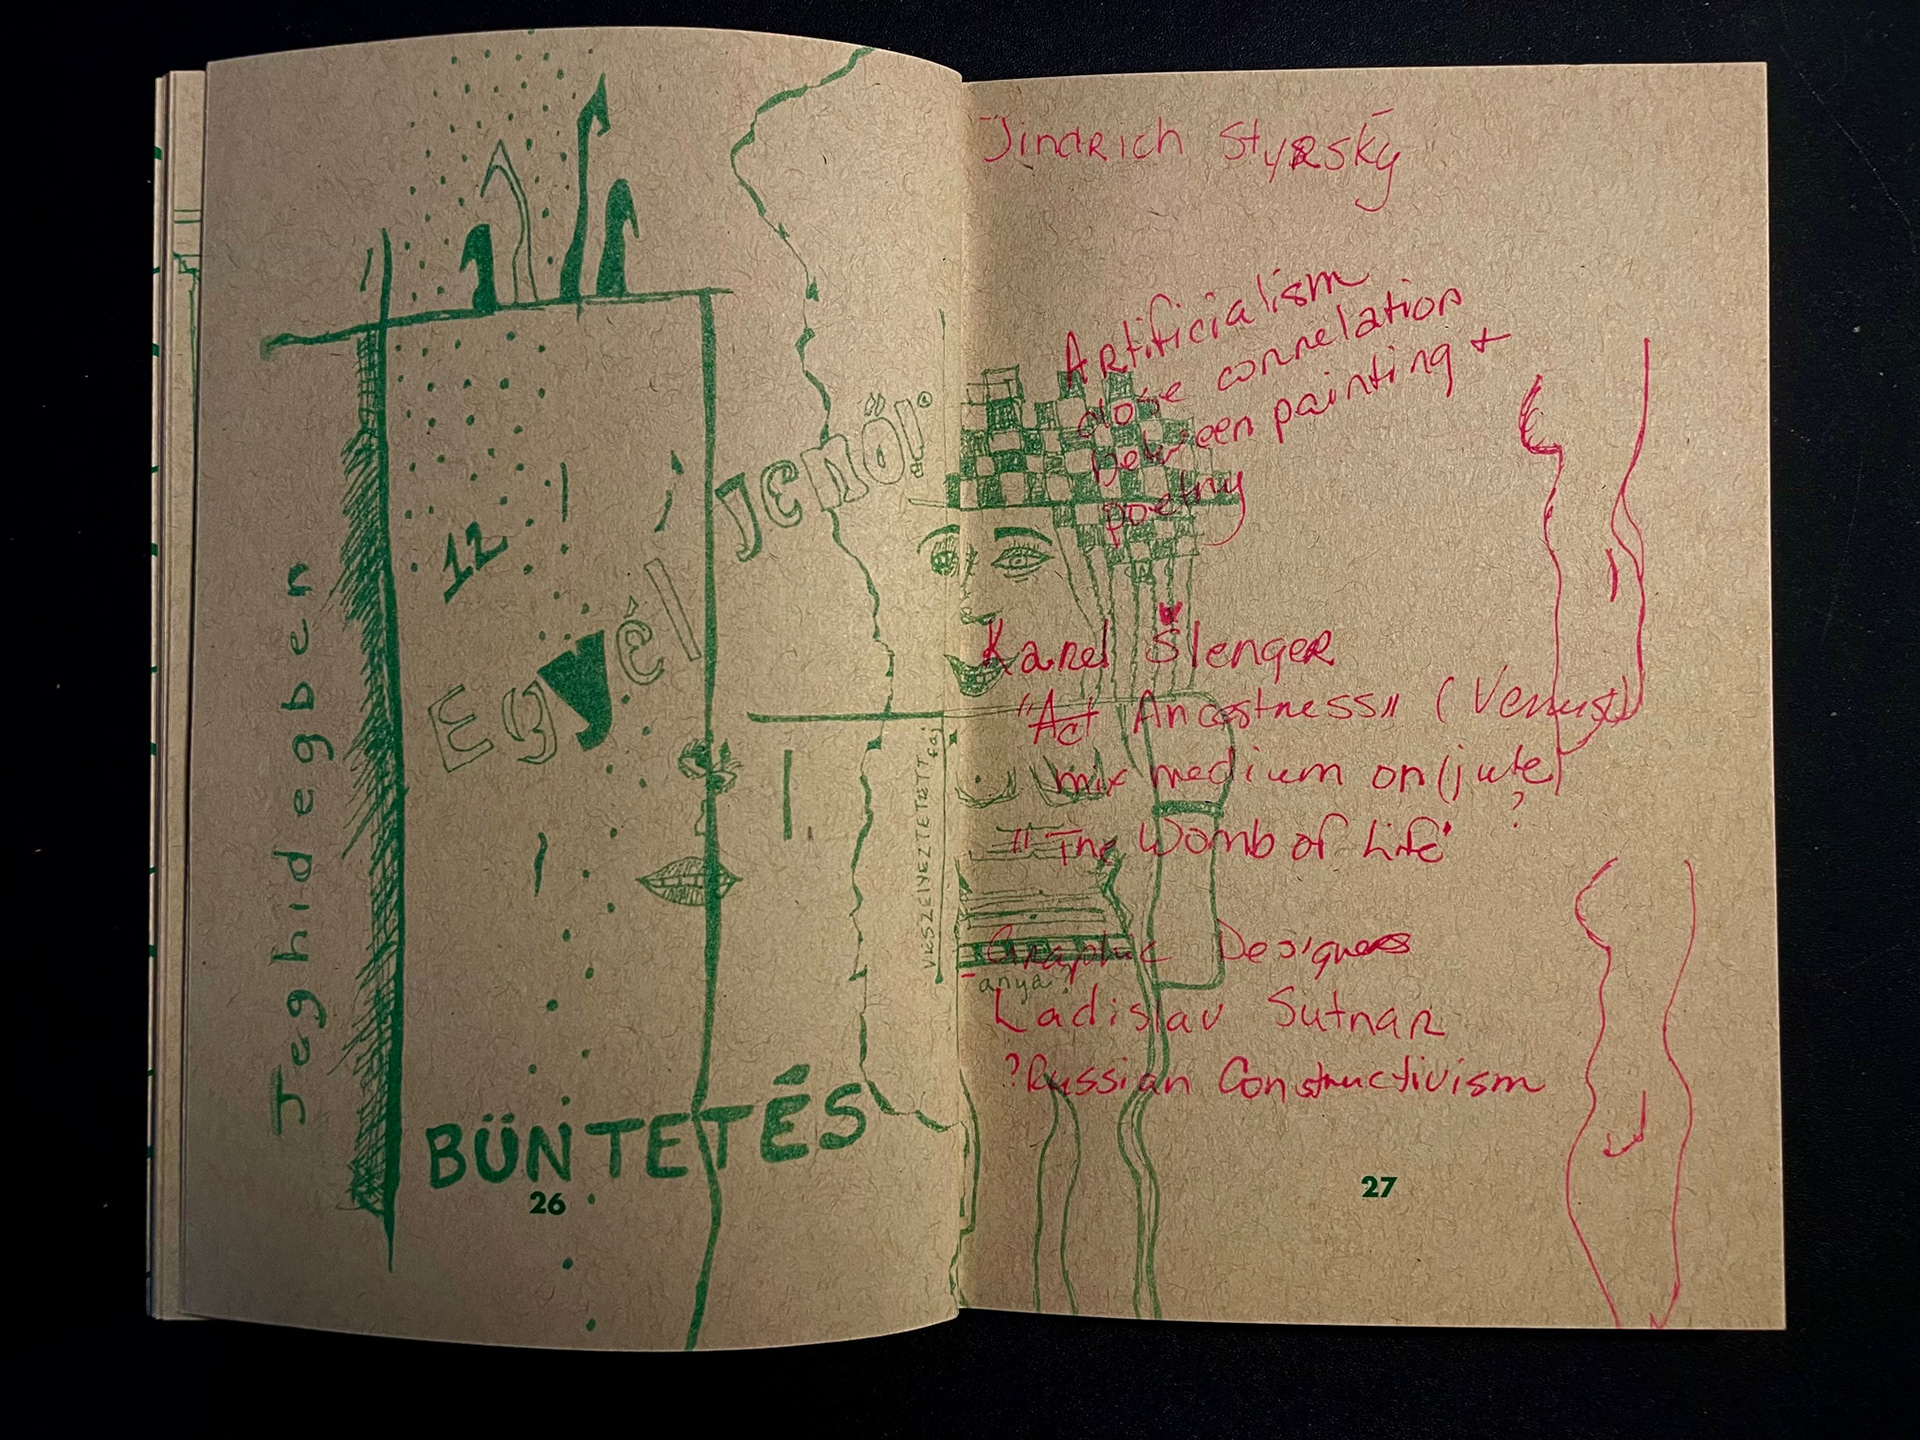 Jeghidegben
12
Egyél
Jenő!
VESZÉLYEZTETETT
faj
BÜNTETÉS
26
Jindrich Styrský
Artificialism
close correlation
between painting +
poetry
Karel Šlenger
"Act Ancestress" (Venus)
mix medium on (jute)
?
"The Womb of Life"
Graphic Designers
anya
Ladislav Sutnar
?Russian Constructivism
27